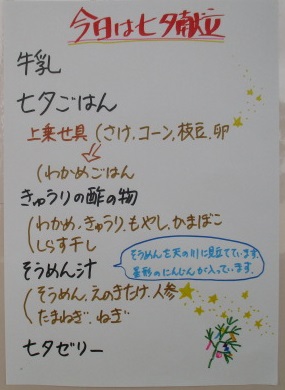 今日は七夕献立
牛乳
七夕ごはん
上乗せ具(さけ、コーン、枝豆、卵
(わかめごはん
きゅうりの酢の物
(わかめ、きゅうり、もやし、かまぼこ
しらす干し
そうめんを天の川に見立てています。
星形のにんじんが入っています。
そうめん汁
(そうめん、えのきたけ、人参
たまねぎ、ねぎ
七夕ゼリー